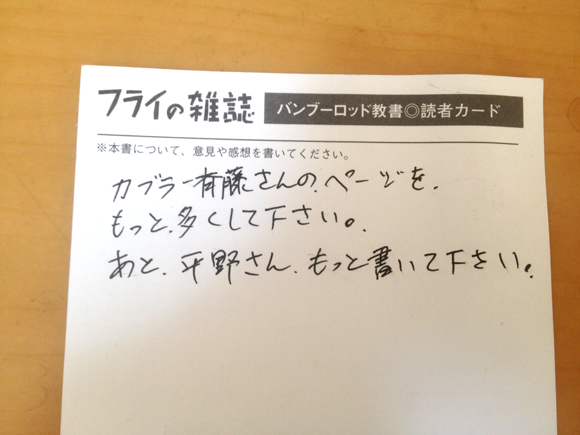 フライの雑誌
バンブーロッド教書◎読者カード
※本書について、意見や感想を書いてください。
カブラー斉藤さんの、ページを、
もっと、多くして下さい。
あと、平野さん、もっと書いて下さい。